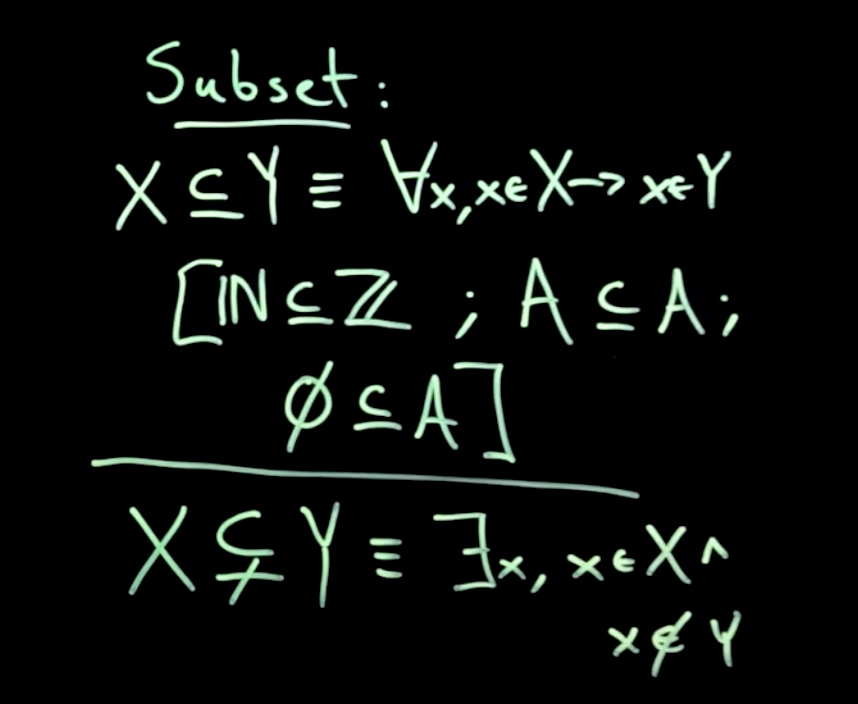 Subset:
X ⊆ Y ≡ ∀x, x∈X → x∈Y
[ℕ ⊆ ℤ ; A ⊆ A;
∅ ⊆ A]
X ⊊ Y ≡ ∃x, x∈X ∧
x∉Y